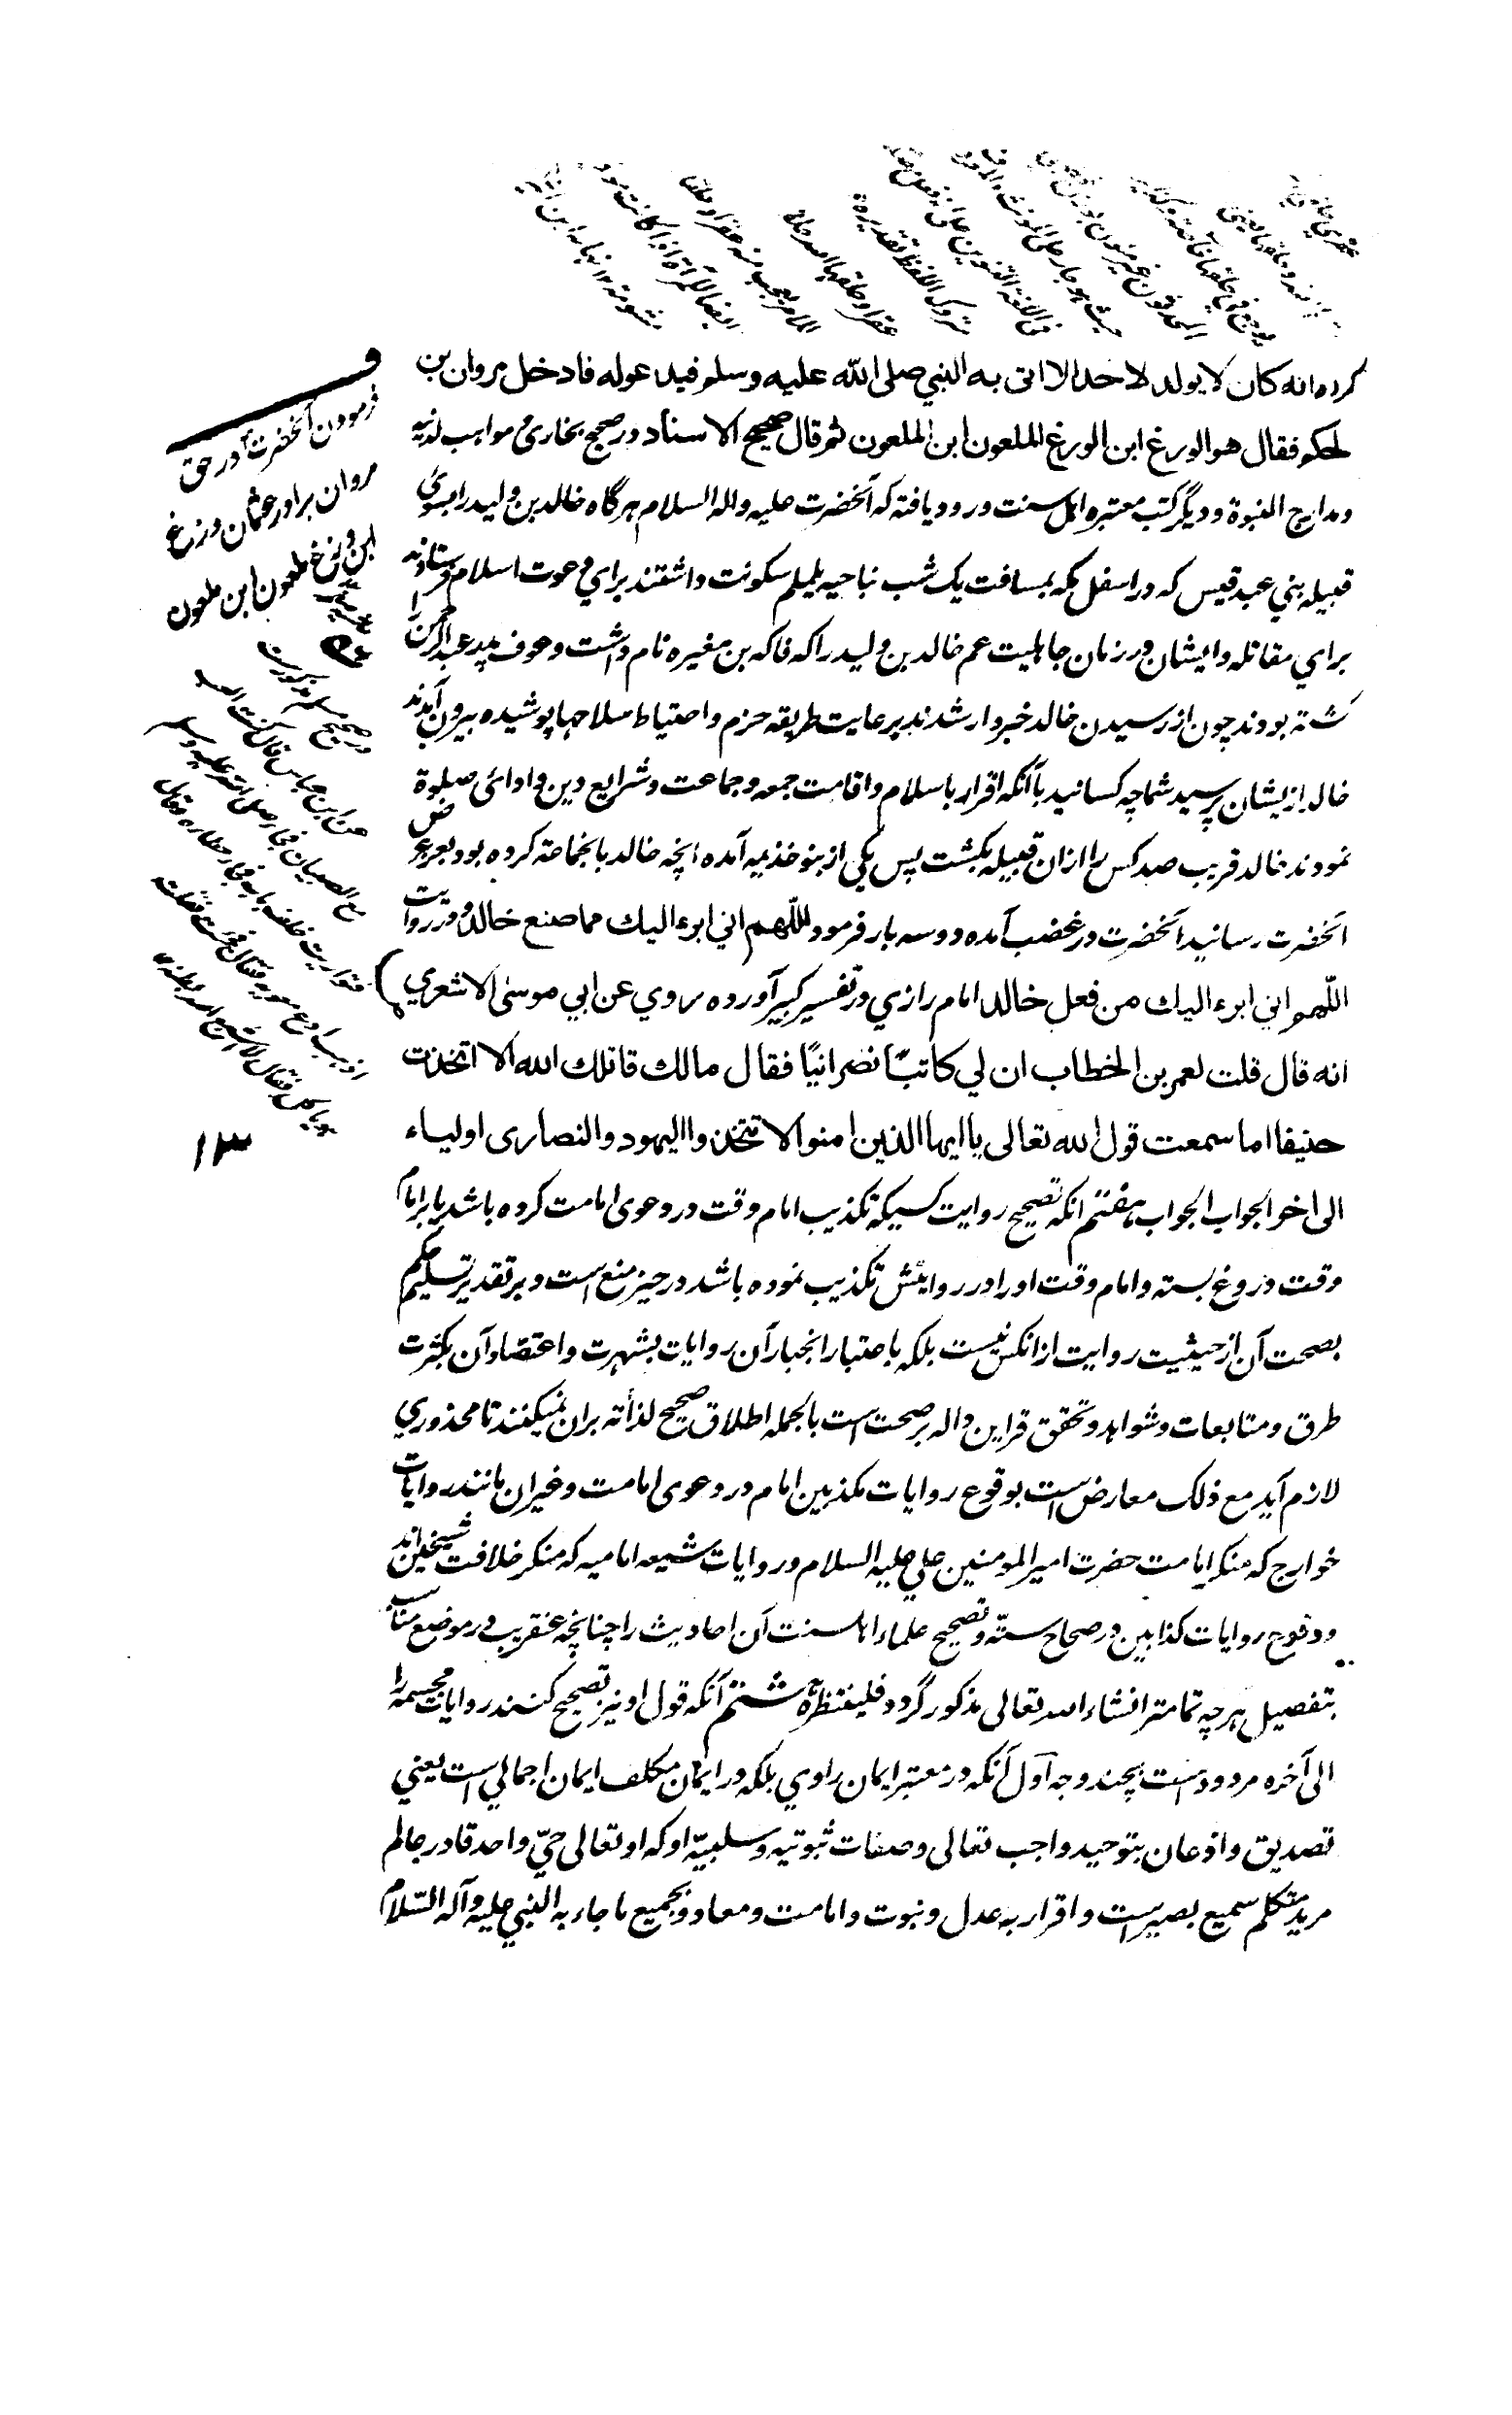 کرده انه کان لا یولد لاحد الا اتی به النبي صلی الله علیه وسلم فیدعوله فادخل مروان بن
لحکم فقال هو الورغ ابن الورغ الملعون ابن الملعون ثم قال صحیح الاسناد ودر صحیح بخاري و مواهب لدنیه
و مدارج النبوة و دیگر کتب معتبره اهل سنت ورود یافته که آنحضرت علیه واله السلام هرگاه خالد بن ولید را بسوي
قبیله بني عبد قیس که در اسفل مکه بمسافت یک شب بناحیه یلملم سکونت داشتند براي دعوت اسلام فرستادند نه
براي مقاتله و ایشان در زمان جاهلیت عم خالد بن ولید را که فاکه بن مغیره نام داشت و عوف پدر عبدالرحمن را
کشته بودند چون از رسیدن خالد خبردار شدند برعایت طریقه حزم و احتیاط سلاحها پوشیده بیرون آمدند
خالد از یشان پرسید شما چه کسانید با آنکه اقرار باسلام و اقامت جمعه و جماعت و شرایع دین و ادائی صلوة
نمودند خالد قریب صد کس را ازان قبیله بکشت پس یکی از بنو خذیمه آمده انچه خالد بانجماعة کرده بود بعرض
آنحضرت رسانید آنحضرت در غضب آمده دو سه بار فرمود اللّهم اني ابرء الیك مما صنع خالد و در روایت
اللّهم اني ابرء الیك من فعل خالد امام رازي در تفسیر کبیر آورده روي عن ابي موسیٰ الاشعري
انه قال قلت لعمر بن الخطاب ان لي کاتبًا نصرانیًا فقال مالك قاتلك الله الا اتخذت
حنیفا اما سمعت قول الله تعالی یا ایها الذین امنوا لا تتخذوا الیهود والنصاری اولیاء
الی اخر الجواب الجواب هفتم انکه تصحیح روایت کسیکه تکذیب امام وقت در دعوی امامت کرده باشد یا بر امام
وقت دروغ بسته و امام وقت او را در روایتش تکذیب نموده باشد در حیز منع است و بر تقدیر تسلیم حکم
بصحت آن از حیثیت روایت ازانکس نیست بلکه باعتبار انجبار آن روایات بشهرت و اعتضاد آن بکثرت
طرق و متابعات و شواهد و تحقق قراین داله بر صحت است بالجمله اطلاق صحیح لذاته بران نمیکنند تا محذوري
لازم آید مع ذلک معارض است بوقوع روایات مکذبین امام در دعوی امامت و غیران مانند روایات
خوارج که منکر امامت حضرت امیر المومنین علي علیه السلام و روایات شیعه امامیه که منکر خلافت شیخین اند
و وقوع روایات کذابین در صحاح سته و تصحیح علماء اهلسنت آن احادیث را چنانچه عنقریب در موضع مناسب
بتفصیل هرچه تمامتر انشاء الله تعالی مذکور گردد فلینتظره هشتم آنکه قول او نیز تصحیح کنند روایات مجسمه را
الی آخره مردود است بچند وجه اول آنکه در معتبر ایمان راوي بلکه در ایمان مکلف ایمان اجمالي است یعني
تصدیق و اذعان بتوحید واجب تعالی و صفات ثبوتیه و سلبیّه او که او تعالی حيّ واحد قادر عالم
مرید متکلم سمیع بصیر است و اقرار به عدل و نبوت و امامت و معاد و بجمیع ما جاء به النبي علیه و آله السّلام
ف
فرمودن آنحضرت در حق
مروان برادر عثمان وزغ
ابن وزغ ملعون ابن ملعون
در صحیح مسلم مذکورست
عن ابن عباس قال کنت العب
مع الصبیان فجاء صلی الله علیه وسلم
۱۳